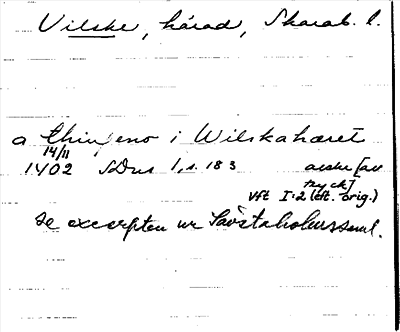 Vilske, härad, Skarab. l.
a thingeno i Wilskahæret
14/11
1402 SDns 1, s. 183 avskr [av
tryck]
Vft I:2 (eft. orig.)
se excerpten ur Sävstaholmssaml.